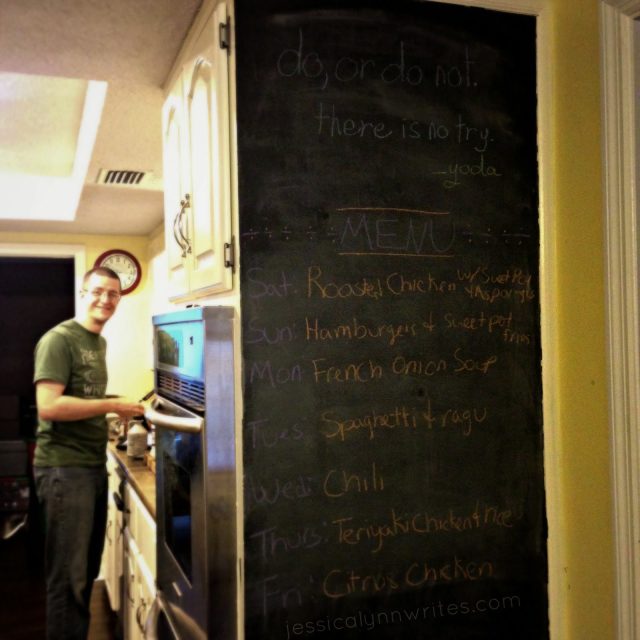 do, or do not.
there is no try.
-yoda
MENU
Sat: Roasted Chicken w/ Sweet
Sun: Hamburgers & Sweet pot.
Mon: French Onion Soup
Tues: Spaghetti & ragu
Wed: Chili
Thurs: Teriyaki Chicken & rice
Fri: Citrus Chicken
jessicalynnwrites.com